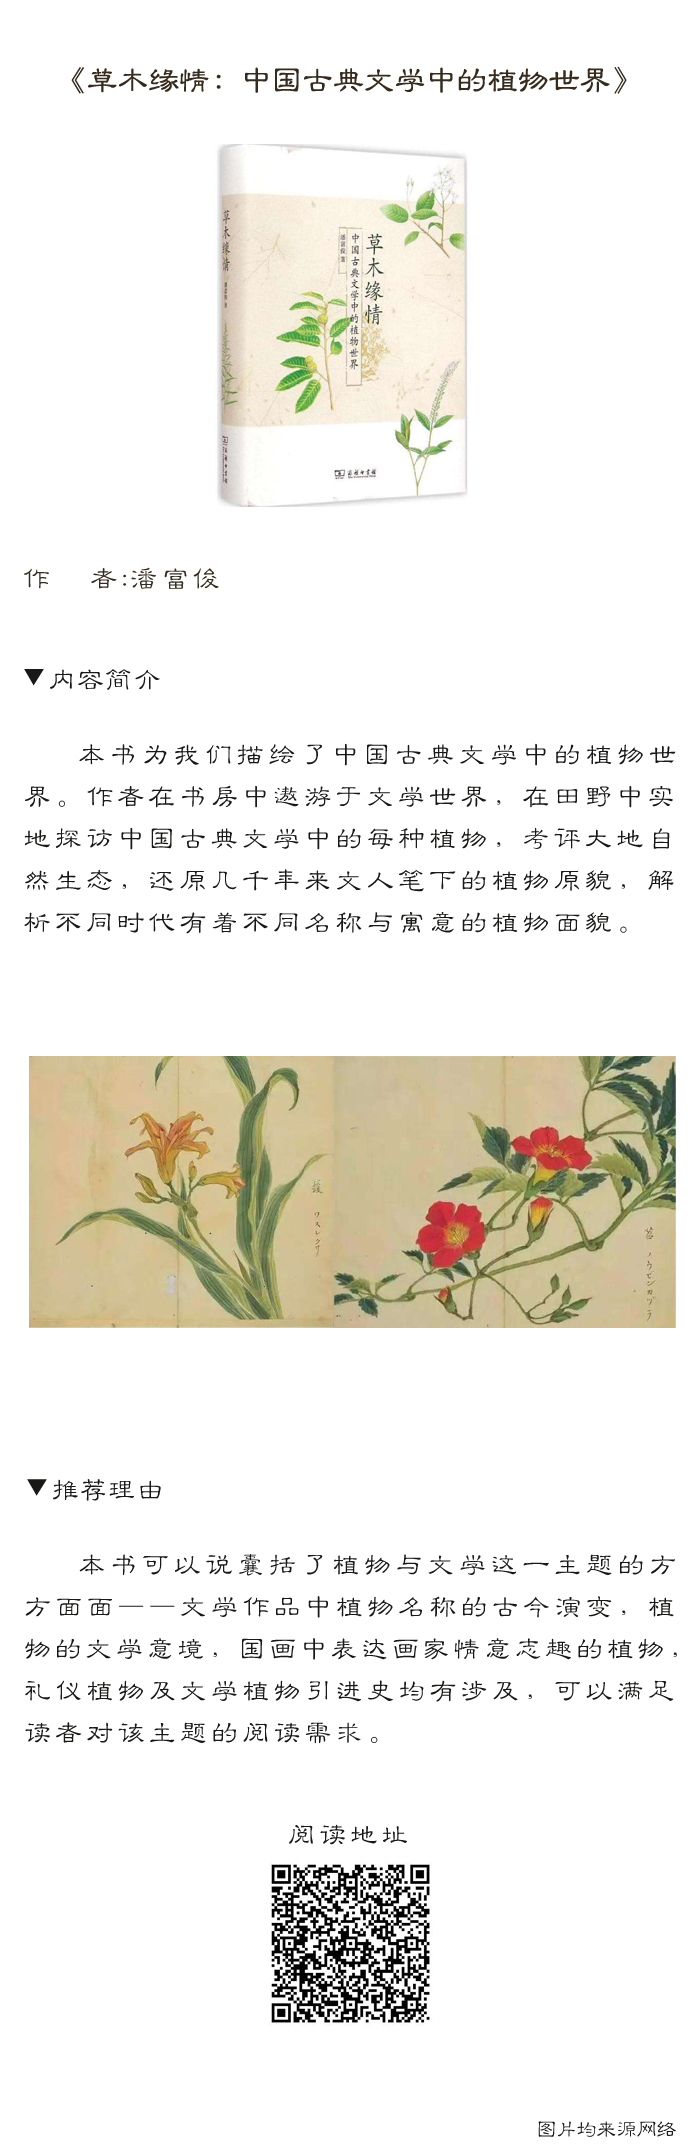 《草木缘情：中国古典文学中的植物世界》
草木缘情
草木缘情
中国古典文学中的植物世界
潘富俊 著
商务印书馆
作 者:潘富俊
▼内容简介
本书为我们描绘了中国古典文学中的植物世
界。作者在书房中遨游于文学世界，在田野中实
地探访中国古典文学中的每种植物，考评大地自
然生态，还原几千年来文人笔下的植物原貌，解
析不同时代有着不同名称与寓意的植物面貌。
萱
ワスレクサ
ノウゼンカヅラ
▼推荐理由
本书可以说囊括了植物与文学这一主题的方
方面面——文学作品中植物名称的古今演变，植
物的文学意境，国画中表达画家情意志趣的植物，
礼仪植物及文学植物引进史均有涉及，可以满足
读者对该主题的阅读需求。
阅读地址
图片均来源网络